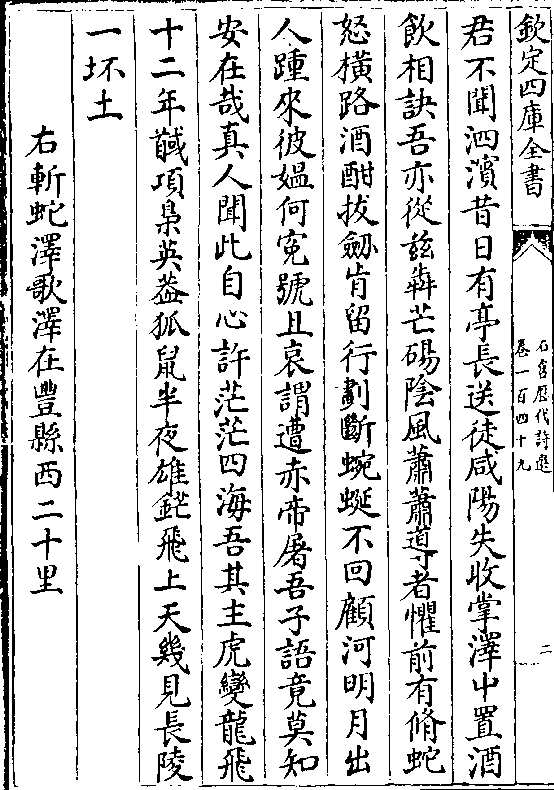 欽定四庫全書
石倉歷代詩選
卷一百四十九
二
君不聞泗濱昔日有亭長送徒咸陽失收掌澤中置酒
飲相訣吾亦從兹犇芒碭陰風蕭蕭導者懼前有脩蛇
怒橫路酒酣拔劔肯留行劃斷蜿蜒不回顧河明月出
人踵來彼媪何寃號且哀謂遭赤帝屠吾子語竟莫知
安在哉真人聞此自心許茫茫四海吾其主虎變龍飛
十二年馘項梟英葢狐鼠半夜雄鋩飛上天幾見長陵
一坏土
右斬蛇澤歌澤在豐縣西二十里